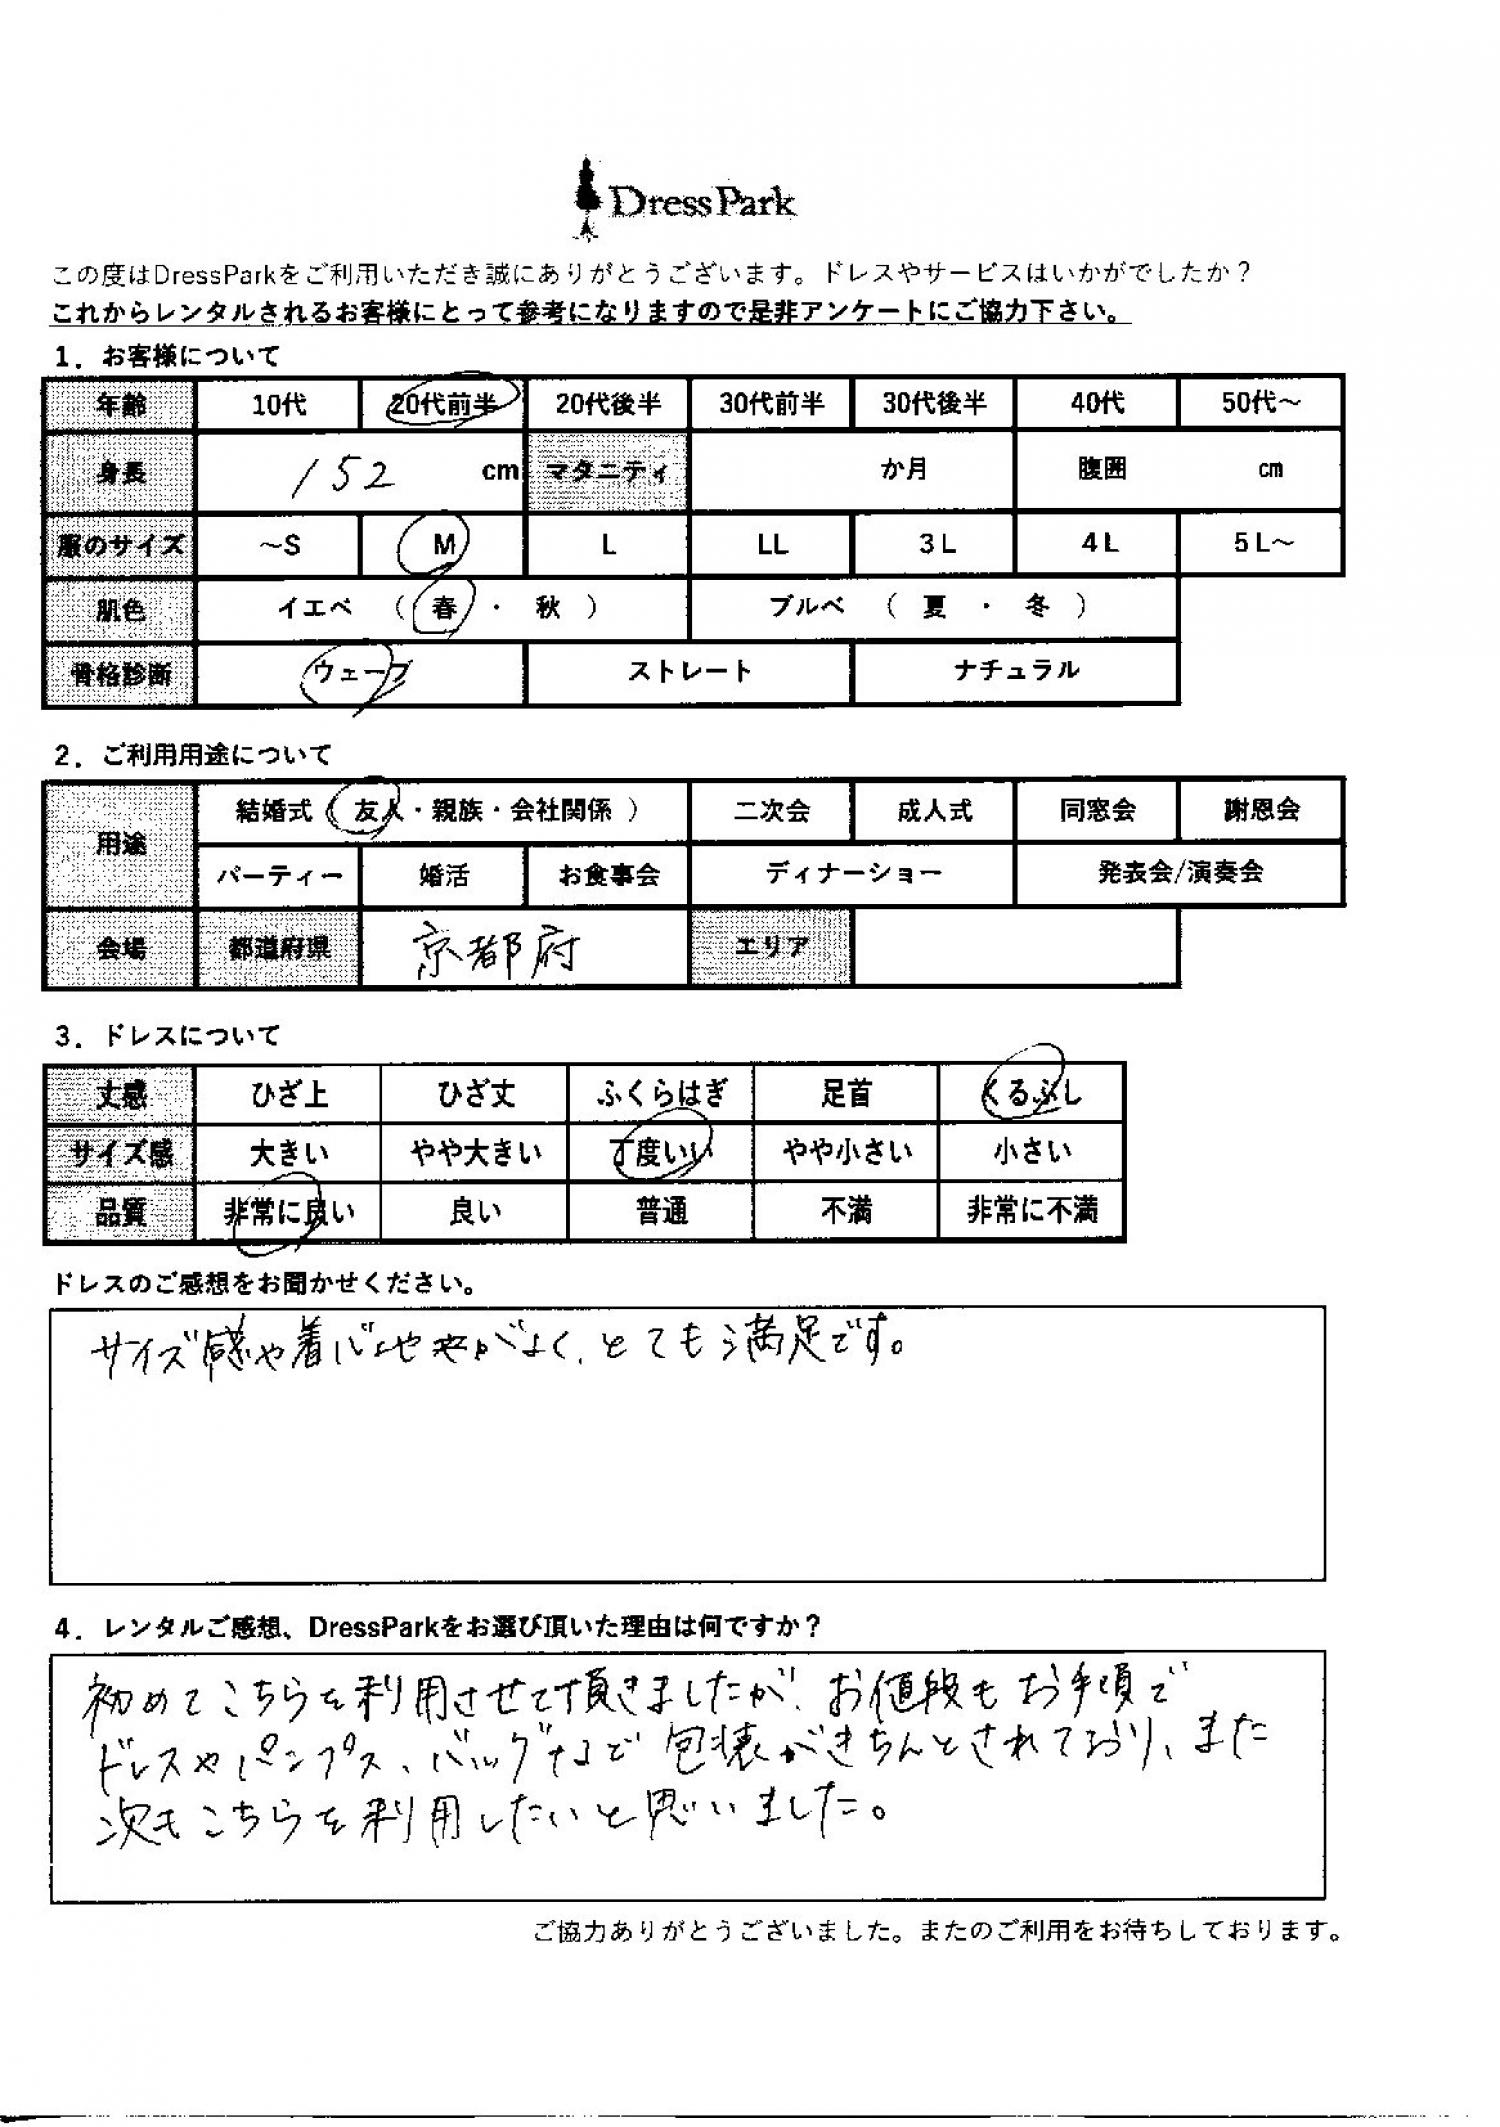 DressPark
この度はDressParkをご利用いただき誠にありがとうございます。ドレスやサービスはいかがでしたか？
これからレンタルされるお客様にとって参考になりますので是非アンケートにご協力下さい。
1．お客様について
年齢 10代 20代前半 20代後半 30代前半 30代後半 40代 50代～
身長 152 cm マタニティ か月 腹囲 cm
服のサイズ ～S M L LL 3L 4L 5L～
肌色 イエベ （ 春 ・ 秋 ） ブルベ （ 夏 ・ 冬 ）
骨格診断 ウェーブ ストレート ナチュラル
2．ご利用用途について
用途 結婚式（ 友人・親族・会社関係 ） 二次会 成人式 同窓会 謝恩会
パーティー 婚活 お食事会 ディナーショー 発表会/演奏会
会場 都道府県 京都府 エリア
3．ドレスについて
丈感 ひざ上 ひざ丈 ふくらはぎ 足首 くるぶし
サイズ感 大きい やや大きい 丁度いい やや小さい 小さい
品質 非常に良い 良い 普通 不満 非常に不満
ドレスのご感想をお聞かせください。
サイズ感や着心地がよく、とても満足です。
4．レンタルご感想、DressParkをお選び頂いた理由は何ですか？
初めてこちらを利用させて頂きましたが、お値段もお手頃で
ドレスやパンプス、バッグなど包装がきちんとされており、また
次もこちらを利用したいと思いました。
ご協力ありがとうございました。またのご利用をお待ちしております。